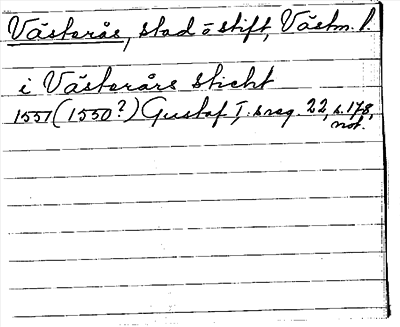 Västerås, stad o stift, Västm. l.
i Västerårs sticht
1551 (1550?) Gustaf I:s reg. 22, s. 178,
not.